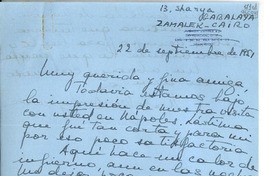 13, Sharya
GABALAYA
ZAMALEK - CAIRO
22 de septiembre de 1951
Muy querida y fina amiga,
Todavía estamos bajo
la impresión de nuestra visita
con usted en Nápoles. Lástima
que fui tan corta y para mí
por eso poco satisfactoria
Aquí hace un calor de
infierno aun en las noches